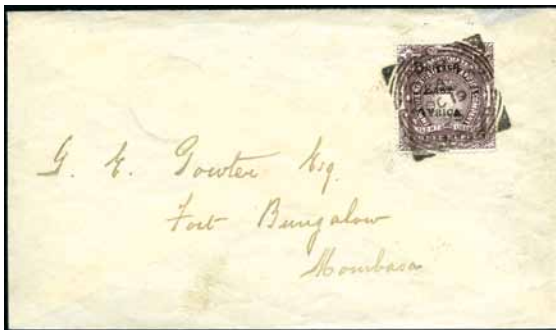 British
East
Africa
G. E. Gowter Esq.
Fort Bungalow
Mombasa